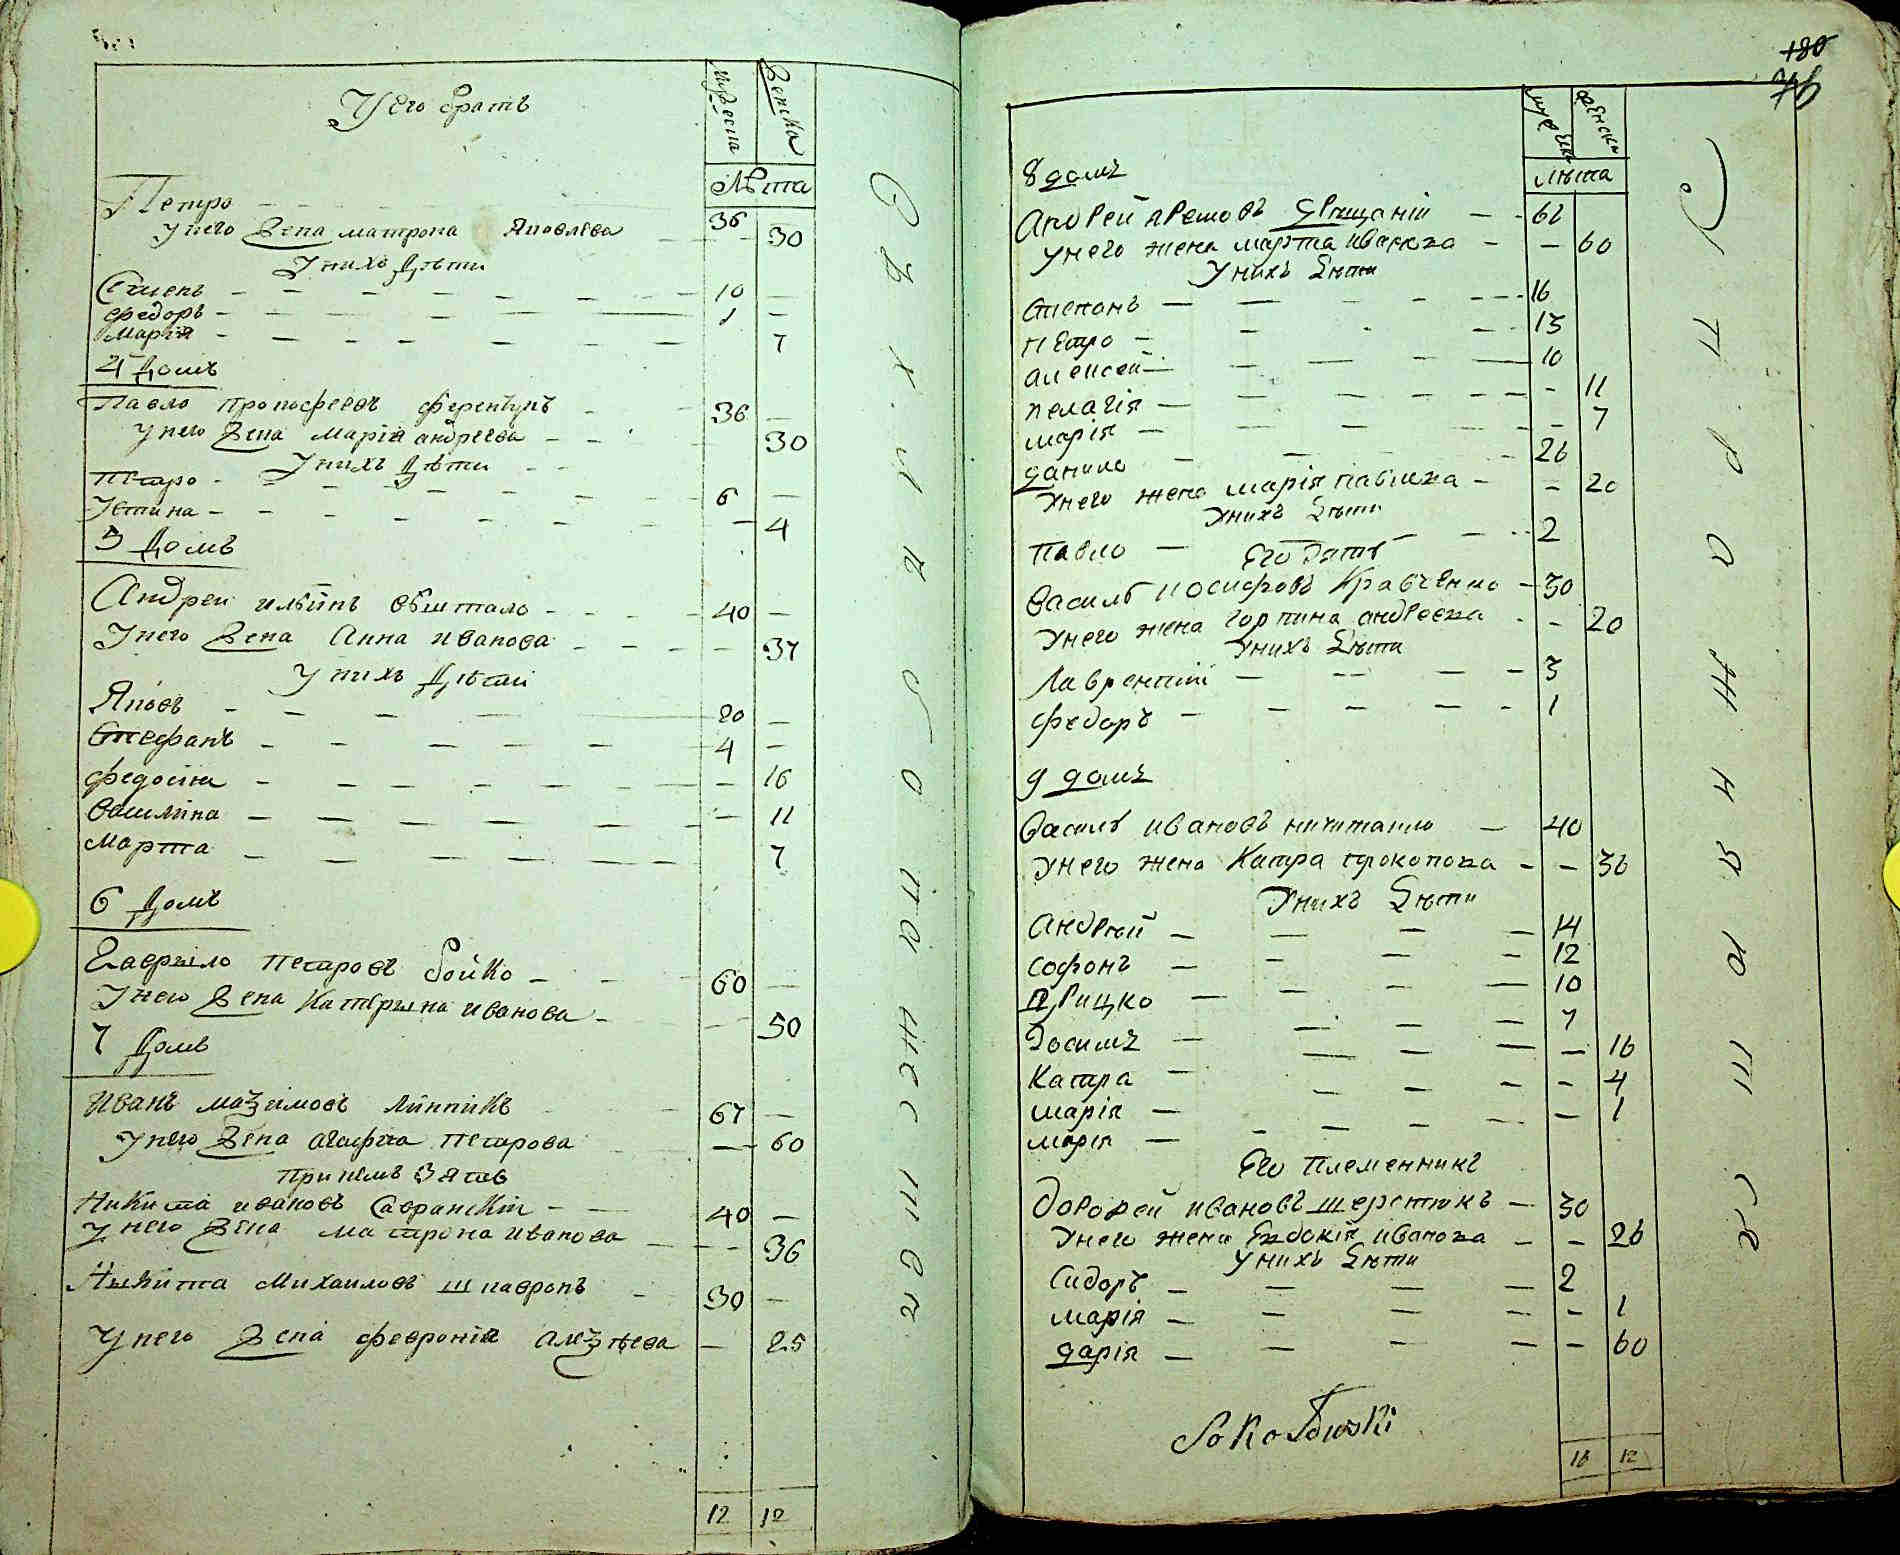 У его братъ
мужеска
женска
Лѣта
Петро - - - 36
У него жена матрона Яковлева - - 30
У нихъ Дѣти
Семенъ - - - 10 -
федоръ - - - 1 -
Марія - - - 7
4 Домъ
Павло прокофеевъ - - 36 -
У него жена Марія андреева - - - 30
У нихъ Дѣти - -
Петро - - - 6 -
Устина - - - 4
5 Домъ
Андреи ильинъ - - - 40 -
У него жена Анна иванова - - - 37
У нихъ Дѣти
Яковъ - - - 20 -
Стефанъ - - - 4 -
федосия - - - 16
Василина - - - 11
Марта - - - 7
6 Домъ
Гаврыло петровъ бойко - - - 60 -
У него жена Катерына иванова - - 50
7 Домъ
Иванъ мазимовъ Линникъ - 67 -
У него жена агафиа петрова - 60
Принелъ Зять
Никита ивановъ Савранскій - - 40 -
У него жена матрона иванова - - 36
Никита Михаиловъ - 30 -
У него жена феврониа алезѣева - 25
12 12
180
76
мужеск
женски
лѣта
8 домъ
андрей - - 62
унего жена марта иванова - - 60
Унихъ дѣти
степанъ - - - 16
петро - - - 13
алексей - - - 10
пелагія - - - 11
марія - - - 7
данило - - - 26
Унего жена марія павлова - - 20
Унихъ дѣти
Павло - - - 2
Его зять
василь иосифовъ Кравченко - 30
Унего жена горпина андреева - - 20
Унихъ дѣти
Лаврентій - - - 3
федоръ - - - 1
9 домъ
василь ивановъ - 40
Унего жена Катра прокопова - - 36
Унихъ дѣти
андрѣй - - - 14
софонъ - - - 12
грицко - - - 10
- - - 7
Катра - - - 16
марія - - - 4
марія - - - 1
Его племенникъ
ивановъ шерстюкъ - 30
Унего жена Евдокія иванова - - 26
Унихъ дѣти
Сидоръ - - - 2
марія - - - 1
дарія - - - 60
Sokołowski
16 12